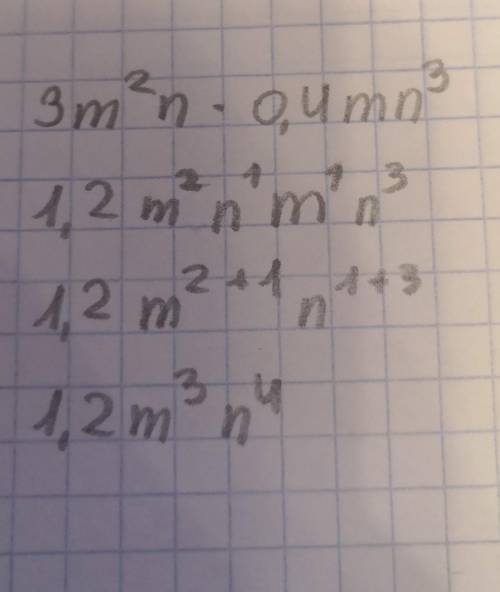 3m²n · 0,4mn³
1,2 m² n¹ m¹ n³
1,2 m²⁺¹ n¹⁺³
1,2 m³ n⁴